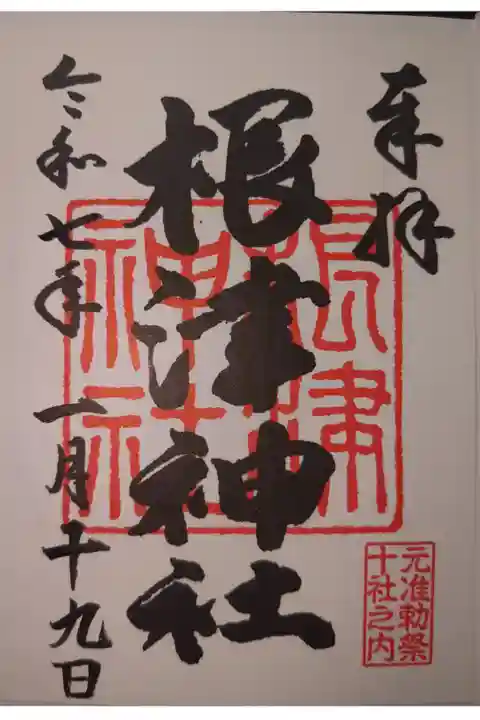 奉拝
根津神社
根津神社
令和七年一月十九日
元准勅祭
十社之内